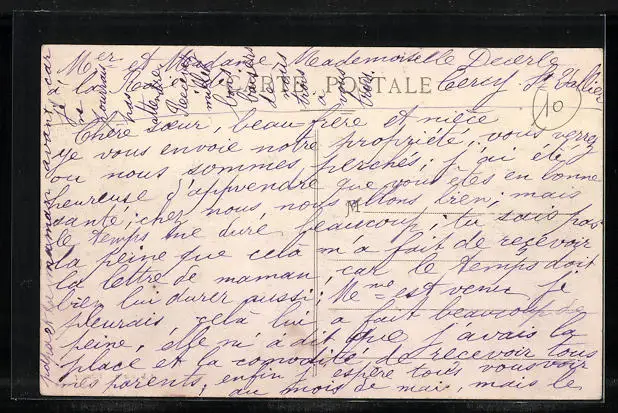 Mer et Madame Mademoiselle Decerle
à la Cercy St Vallier
CARTE POSTALE
10
Chère sœur, beau-frère et nièce
Je vous envoie notre propriété, vous verrez
ou nous sommes perchés; j'ai été
heureuse d'apprendre que vous êtes en bonne
santé; chez nous nous allons bien, mais
le temps me dure beaucoup; tu sais pas
la peine que cela m'a fait de recevoir
la lettre de maman car le temps doit
bien lui durer aussi; Me est venu je
pleurais, celà lui a fait beaucoup de
peine, elle m'a dit que j'avais la
place et la comodité de recevoir tous
mes parents, enfin j'espère tous vous voir
du mois de mai, mais le
pourrai pas
attendre
Recevez
mille
bons
baisers
de
nous
tous
à
vous
trois
M